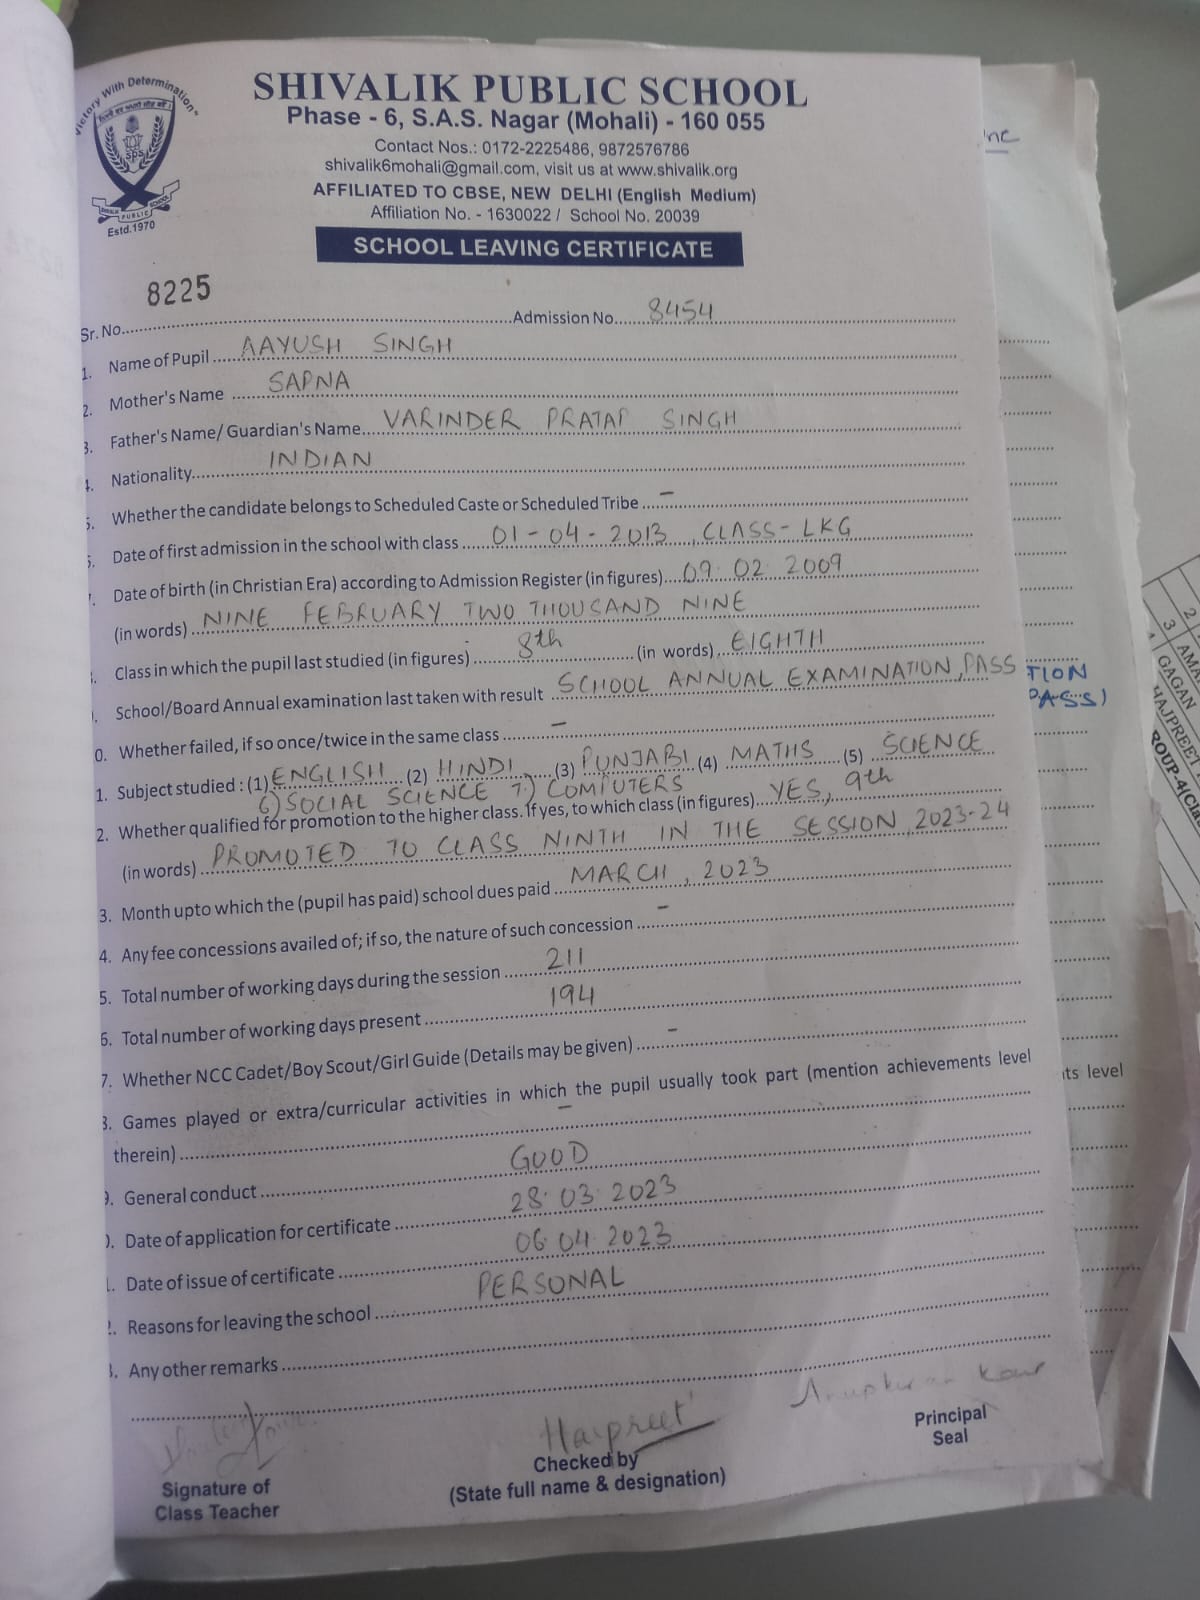 "Victory With Determination"
SPS
SHIVALIK PUBLIC SCHOOL
Estd.1970
SHIVALIK PUBLIC SCHOOL
Phase - 6, S.A.S. Nagar (Mohali) - 160 055
Contact Nos.: 0172-2225486, 9872576786
shivalik6mohali@gmail.com, visit us at www.shivalik.org
AFFILIATED TO CBSE, NEW DELHI (English Medium)
Affiliation No. - 1630022 / School No. 20039
SCHOOL LEAVING CERTIFICATE
Sr. No. 8225 Admission No. 8454
1. Name of Pupil AAYUSH SINGH
2. Mother's Name SAPNA
3. Father's Name/ Guardian's Name VARINDER PRATAP SINGH
4. Nationality INDIAN
5. Whether the candidate belongs to Scheduled Caste or Scheduled Tribe –
6. Date of first admission in the school with class 01-04-2013, CLASS-LKG
. Date of birth (in Christian Era) according to Admission Register (in figures) 09.02.2009
(in words) NINE FEBRUARY TWO THOUSAND NINE
. Class in which the pupil last studied (in figures) 8th (in words) EIGHTH
. School/Board Annual examination last taken with result SCHOOL ANNUAL EXAMINATION, PASS
0. Whether failed, if so once/twice in the same class –
1. Subject studied : (1) ENGLISH (2) HINDI (3) PUNJABI (4) MATHS (5) SCIENCE
6) SOCIAL SCIENCE 7) COMPUTERS
2. Whether qualified for promotion to the higher class. If yes, to which class (in figures) YES, 9th
(in words) PROMOTED TO CLASS NINTH IN THE SESSION 2023-24
3. Month upto which the (pupil has paid) school dues paid MARCH, 2023
4. Any fee concessions availed of; if so, the nature of such concession –
5. Total number of working days during the session 211
6. Total number of working days present 194
7. Whether NCC Cadet/Boy Scout/Girl Guide (Details may be given) –
8. Games played or extra/curricular activities in which the pupil usually took part (mention achievements level
therein) –
9. General conduct GOOD
0. Date of application for certificate 28.03.2023
1. Date of issue of certificate 06.04.2023
2. Reasons for leaving the school PERSONAL
3. Any other remarks
Harpreet
Anupkiran Kaur
Signature of
Class Teacher
Checked by
(State full name & designation)
Principal
Seal
TION
PASS)
ts level
2 AMA
3 GAGAN
HAJPREET